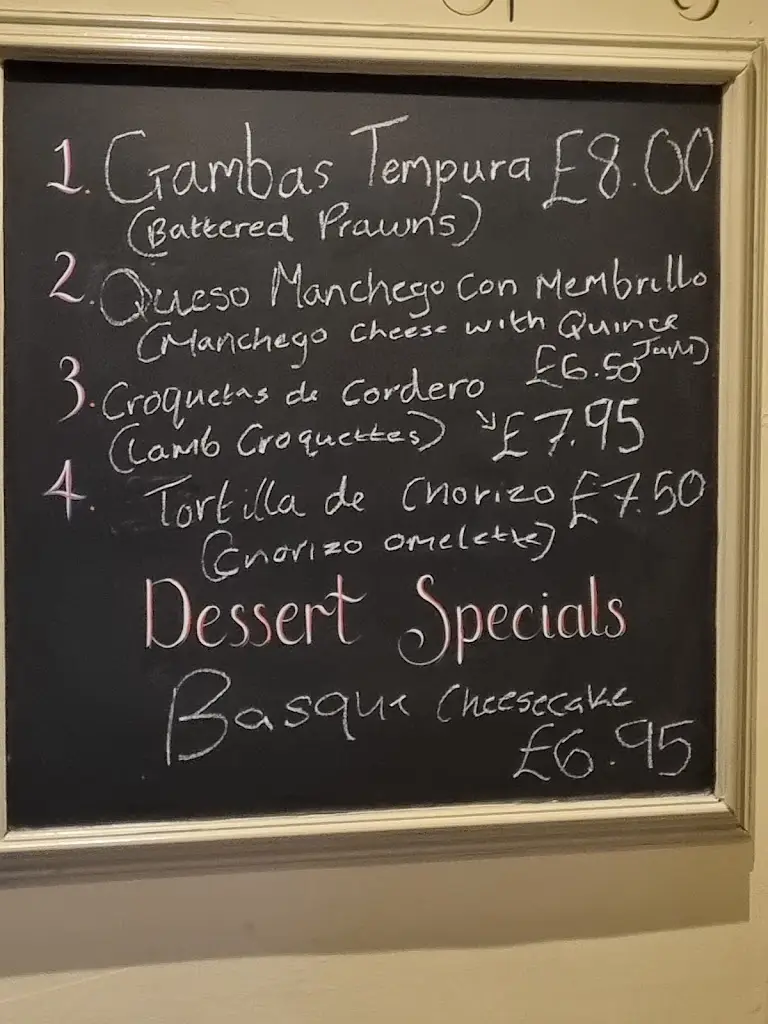 1. Gambas Tempura £8.00
(Battered Prawns)
2. Queso Manchego con Membrillo
(Manchego cheese with Quince
Jam)
£6.50
3. Croquetas de Cordero
(Lamb Croquettes) ↘£7.95
4. Tortilla de Chorizo £7.50
(Chorizo omelette)
Dessert Specials
Basque Cheesecake
£6.95